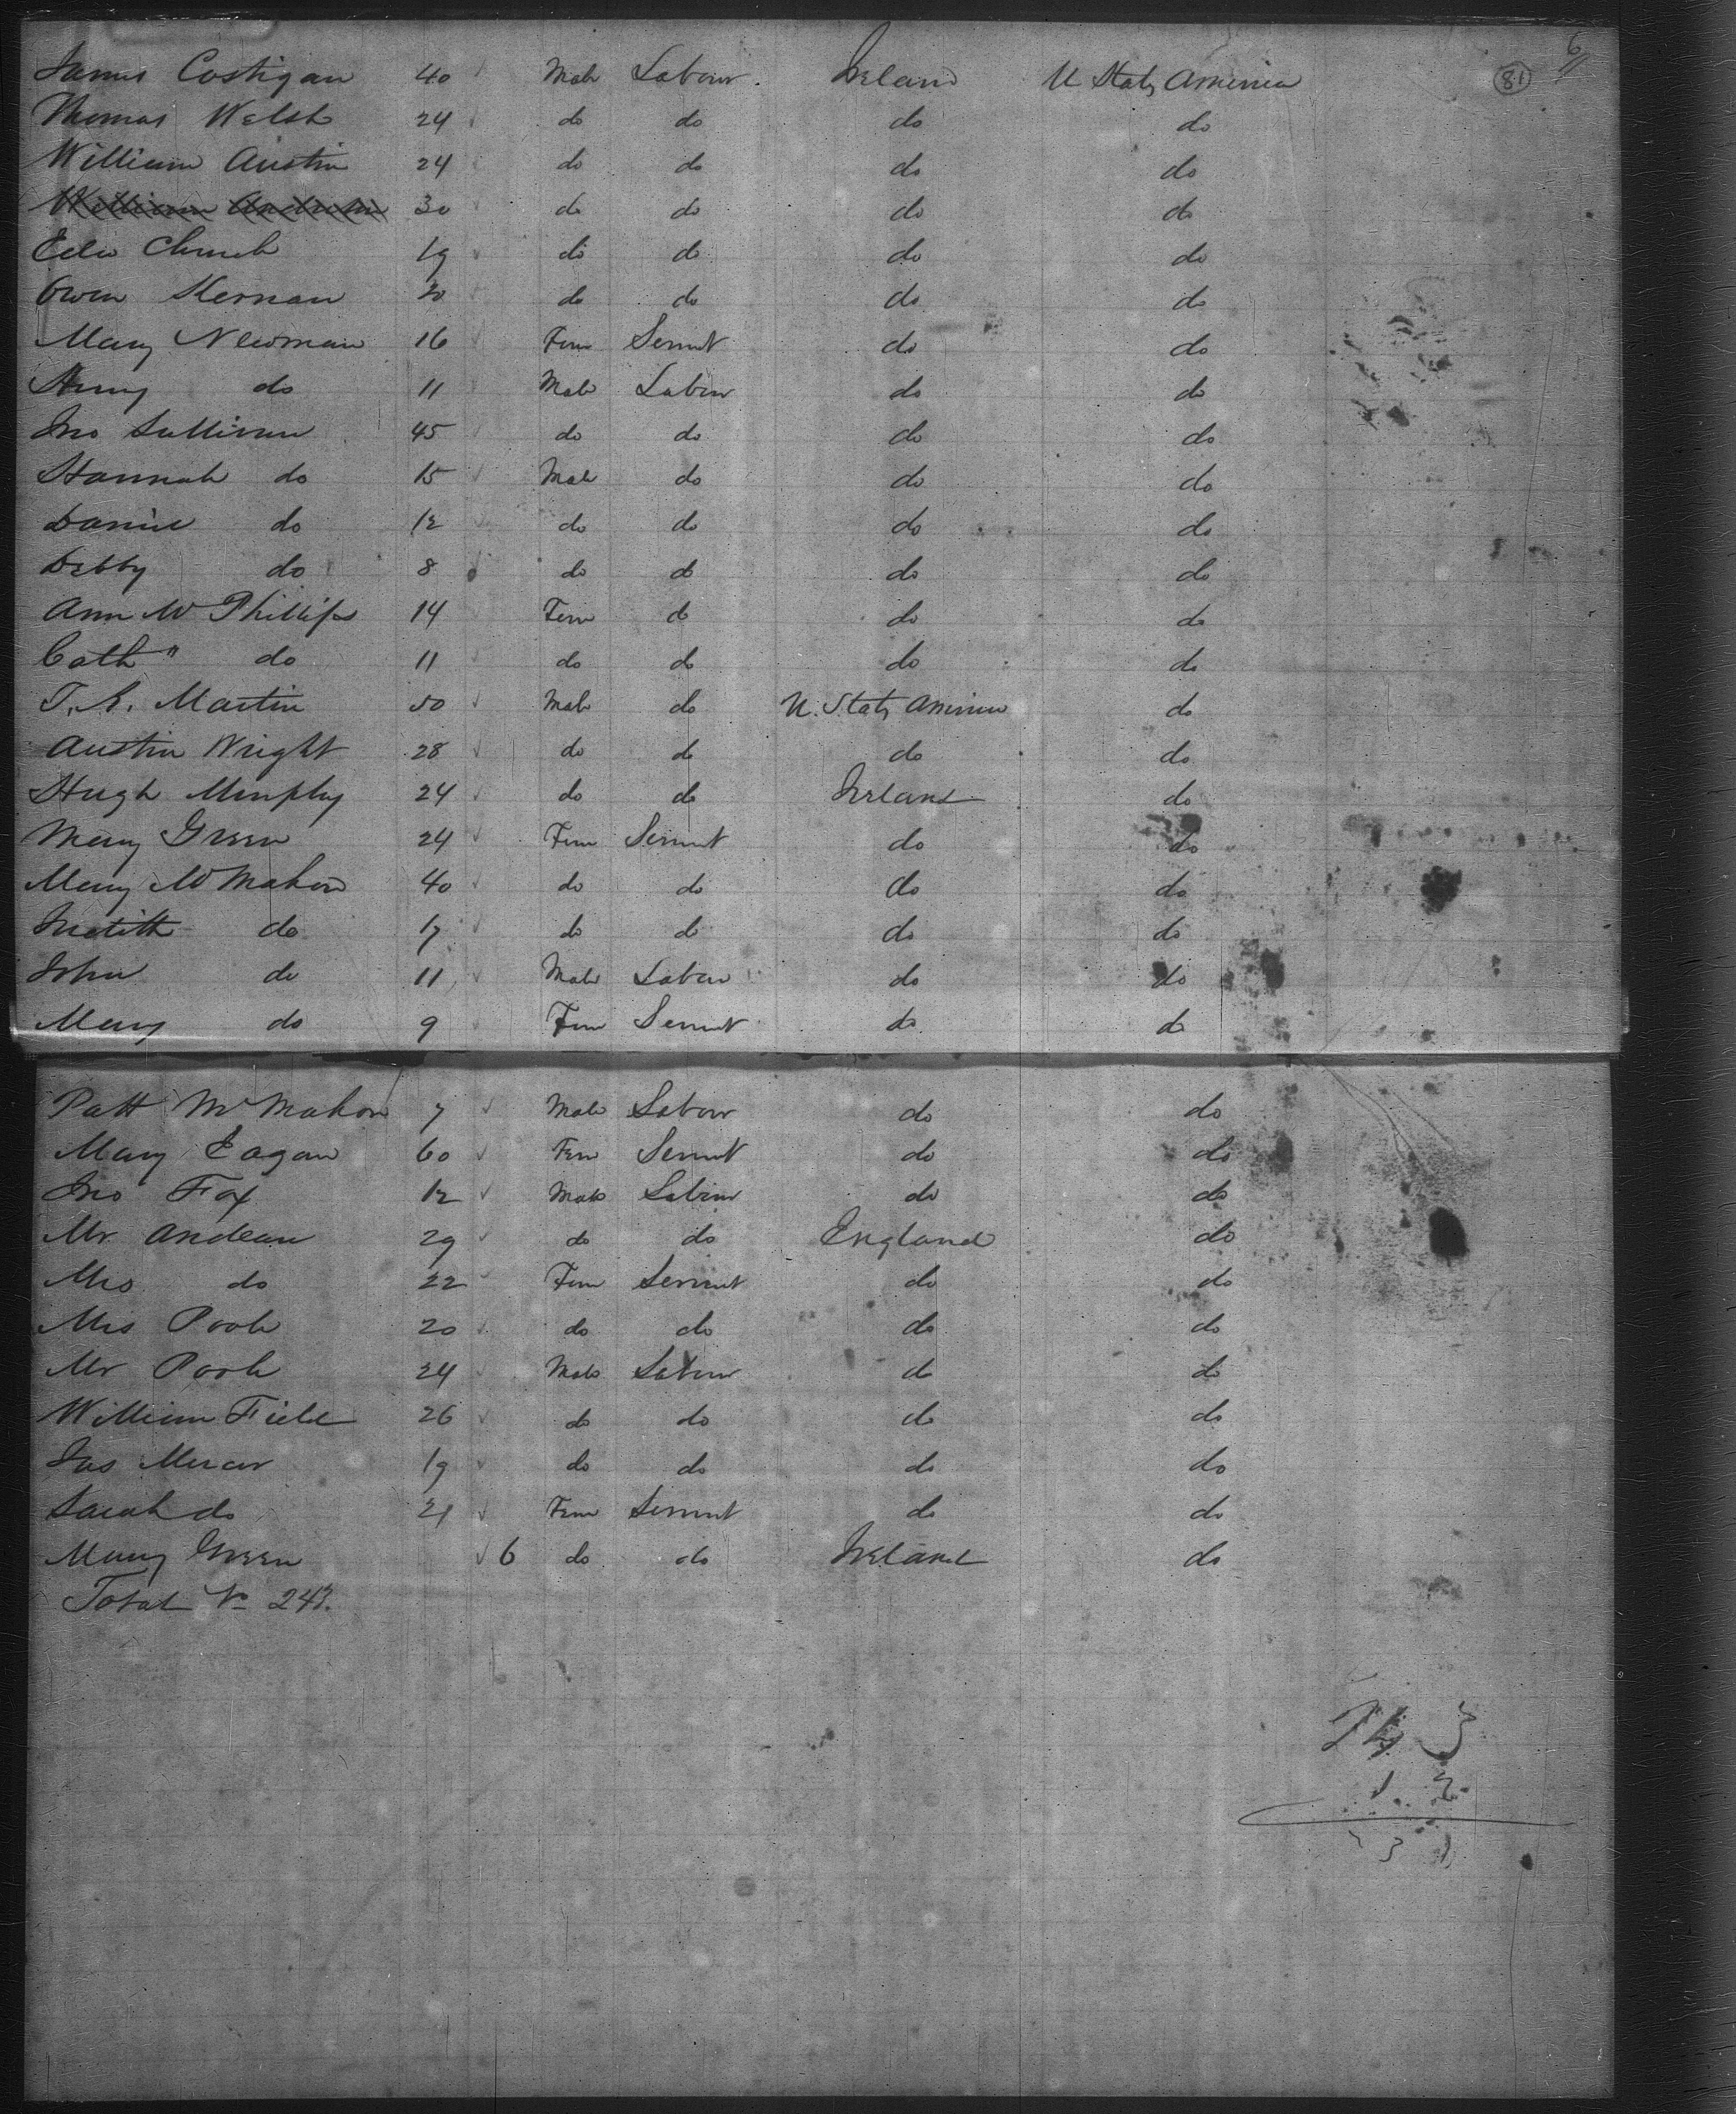 6
James Costigan 40 Male Labour Ireland U States America 81
Thomas Welsh 24 do do do do
William Austin 24 do do do do
William 30 do do do do
Church 19 do do do do
Owen Kernan 30 do do do do
Mary Newman 16 Fem Servnt do do
Henry do 11 Male Labour do do
Jno Sullivan 45 do do do do
Hannah do 15 Male do do do
Daniel do 12 do do do do
Debby do 8 do do do do
Ann Mc Phillips 14 Fem do do do
Cath " do 11 do do do do
T. Martin 50 Male do U. States America do
Austin Wright 28 do do do do
Hugh Murphy 24 do do Ireland do
Mary Green 24 Fem Servnt do do
Mary Mc Mahon 40 do do do do
do 17 do do do do
John do 11 Male Labour do do
Mary do 9 Fem Servnt do do
Patt Mc Mahon 7 Male Labour do do
Mary Eagan 60 Fem Servnt do do
Jno Fox 12 Male Labour do do
Mr Andean 29 do do England do
Mrs do 22 Fem Servnt do do
Mrs Poole 20 do do do do
Mr Poole 24 Male Labour do do
William Field 26 do do do do
Jas Mercer 19 do do do do
Sarah do 21 Fem Servnt do do
Mary Green 6 do do Ireland do
Total No 243.
243
12
231